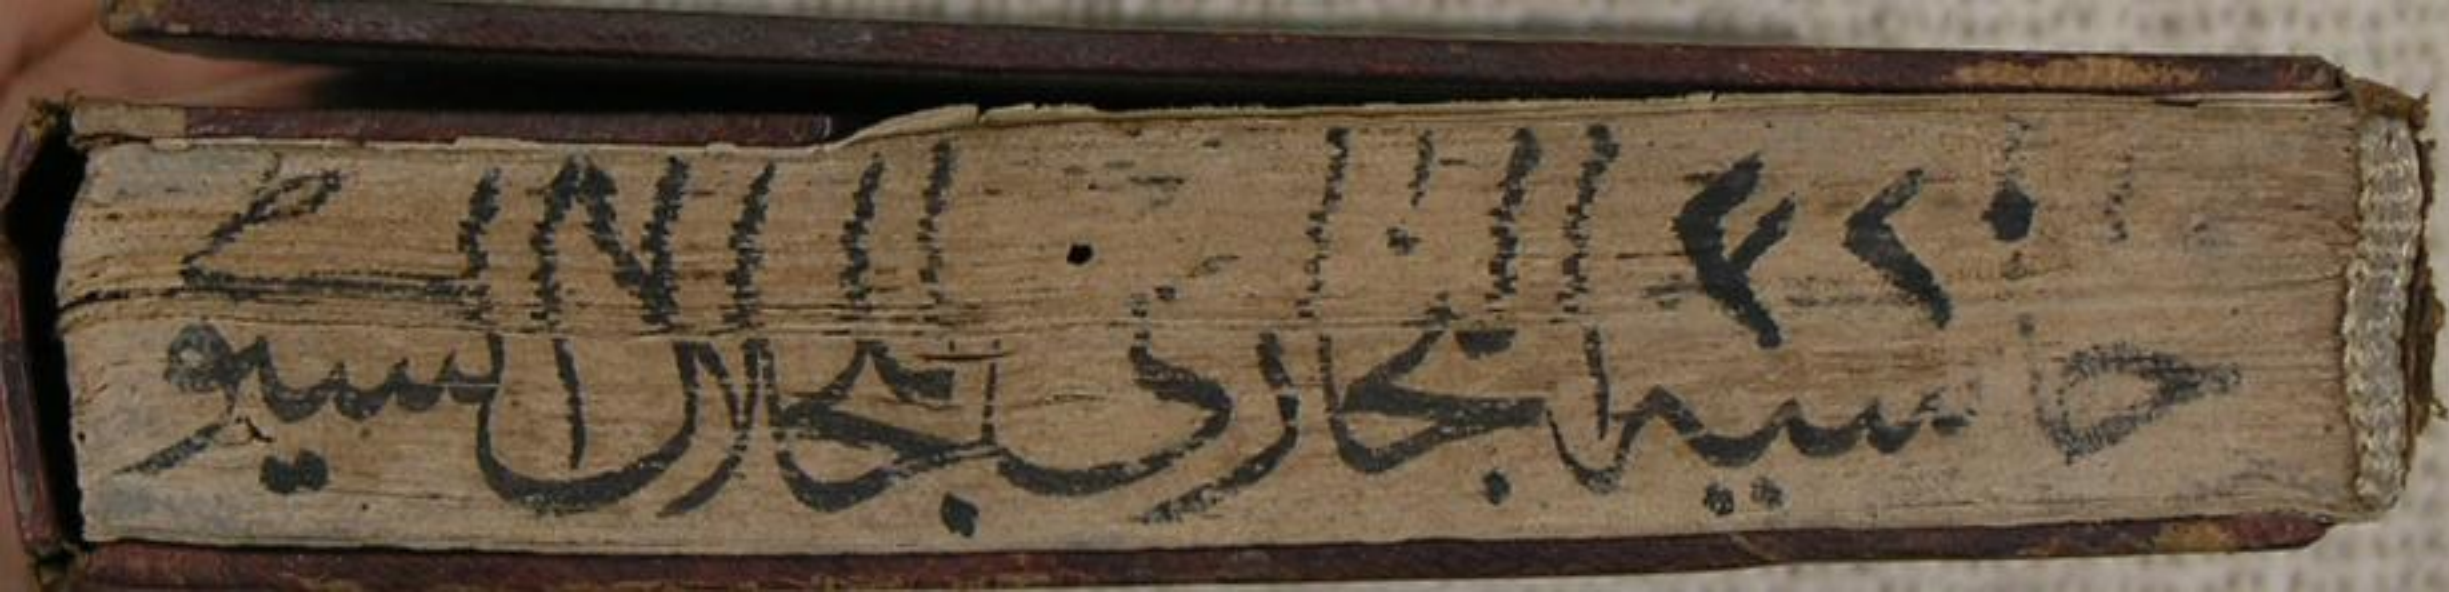 حاشية البخاري للجلال السيوطي